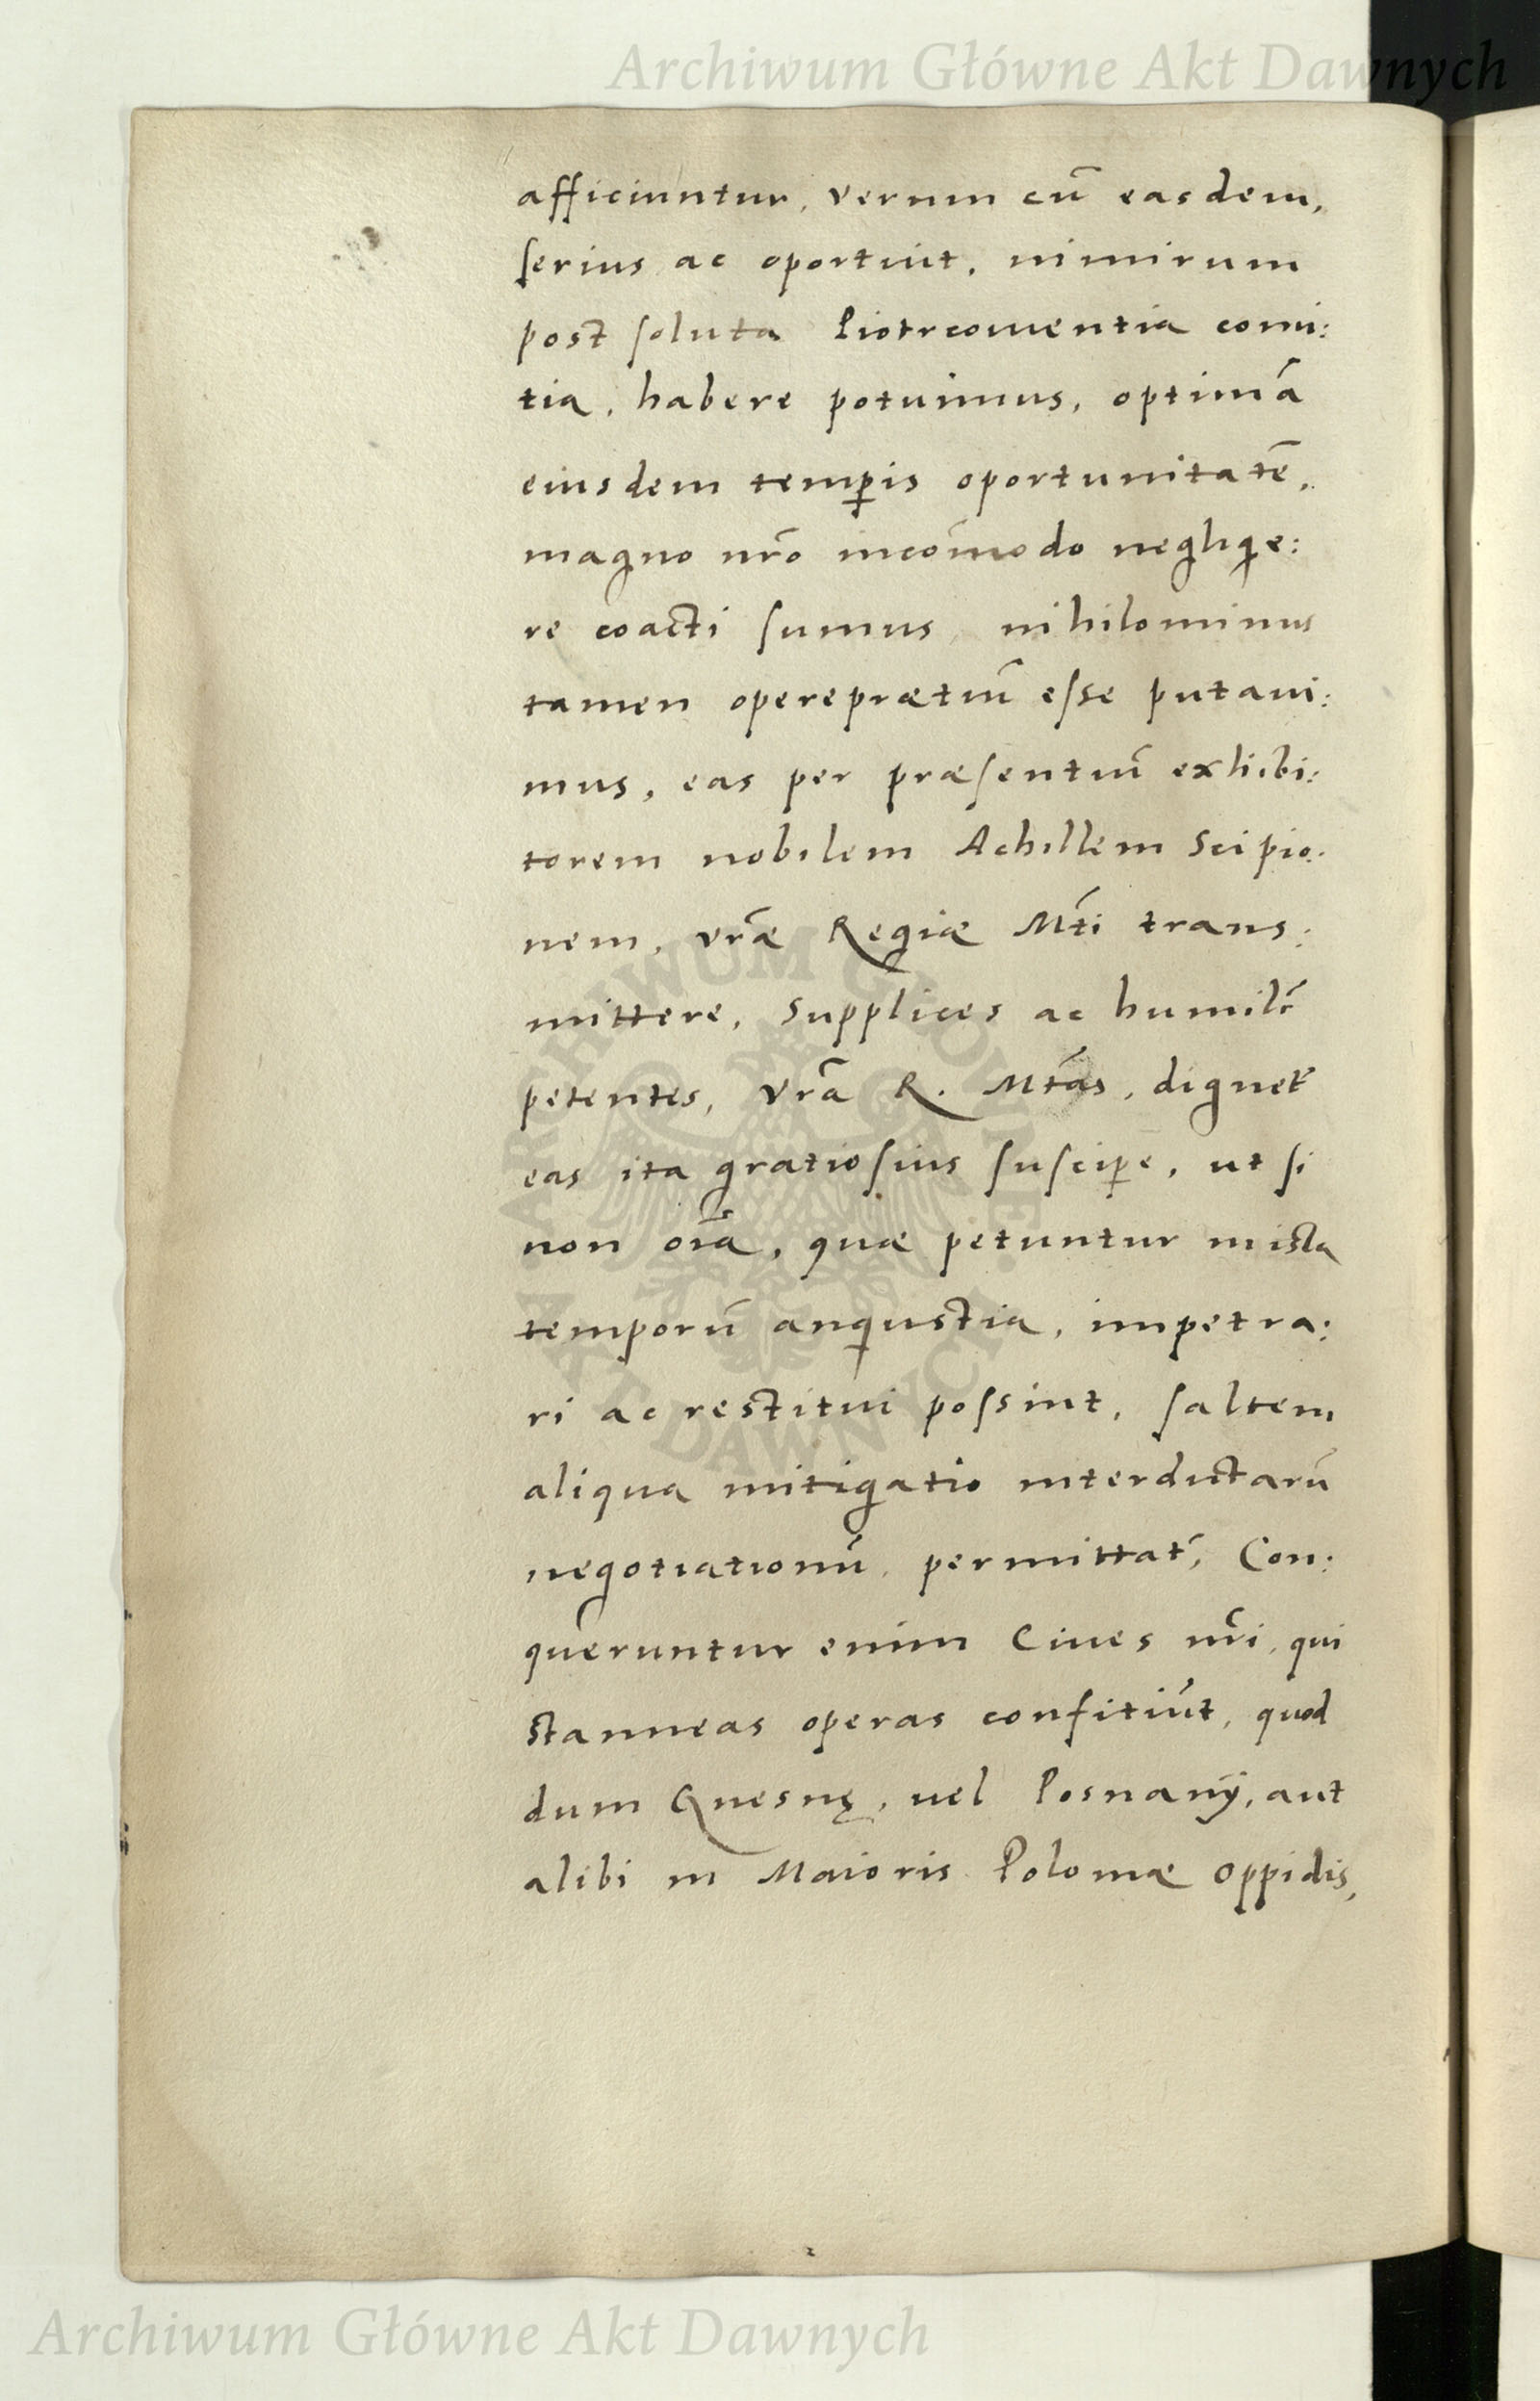 Archiwum Główne Akt Dawnych
afficiuntur, verum cū easdem,
serius ac oportuit, nimirum
post soluta Piotrcouientia comi:
tia, habere potuimus, optimā
eiusdem temꝑis oportunitatē,
magno nr̄o incōmodo neglige:
re coacti sumus, nihilominus
tamen opereprætiū esse putaui:
mus, eas per præsentiū exhibi:
torem nobilem Achillem Scipio:
nem, vr̄æ Regiæ Mt̄i trans:
mittere, Supplices ac humilr̄
petentes, Vr̄a R. Mt̄as, dignet᷑
eas ita gratiosius susciꝑe, ut si
non oī̄a, quæ petuntur in ista
temporū angustia, impetra:
ri ac restitui possint, saltem
aliqua mitigatio interdictarū
negotiationū, permittat᷑, Con:
queruntur enim Ciues nr̄i, qui
stanneas operas confitiūt, quod
dum Gnesnę, uel Posnanÿ, aut
alibi in Maioris Poloniæ oppidis,
ARCHIWUM GŁÓWNE AKT DAWNYCH
Archiwum Główne Akt Dawnych